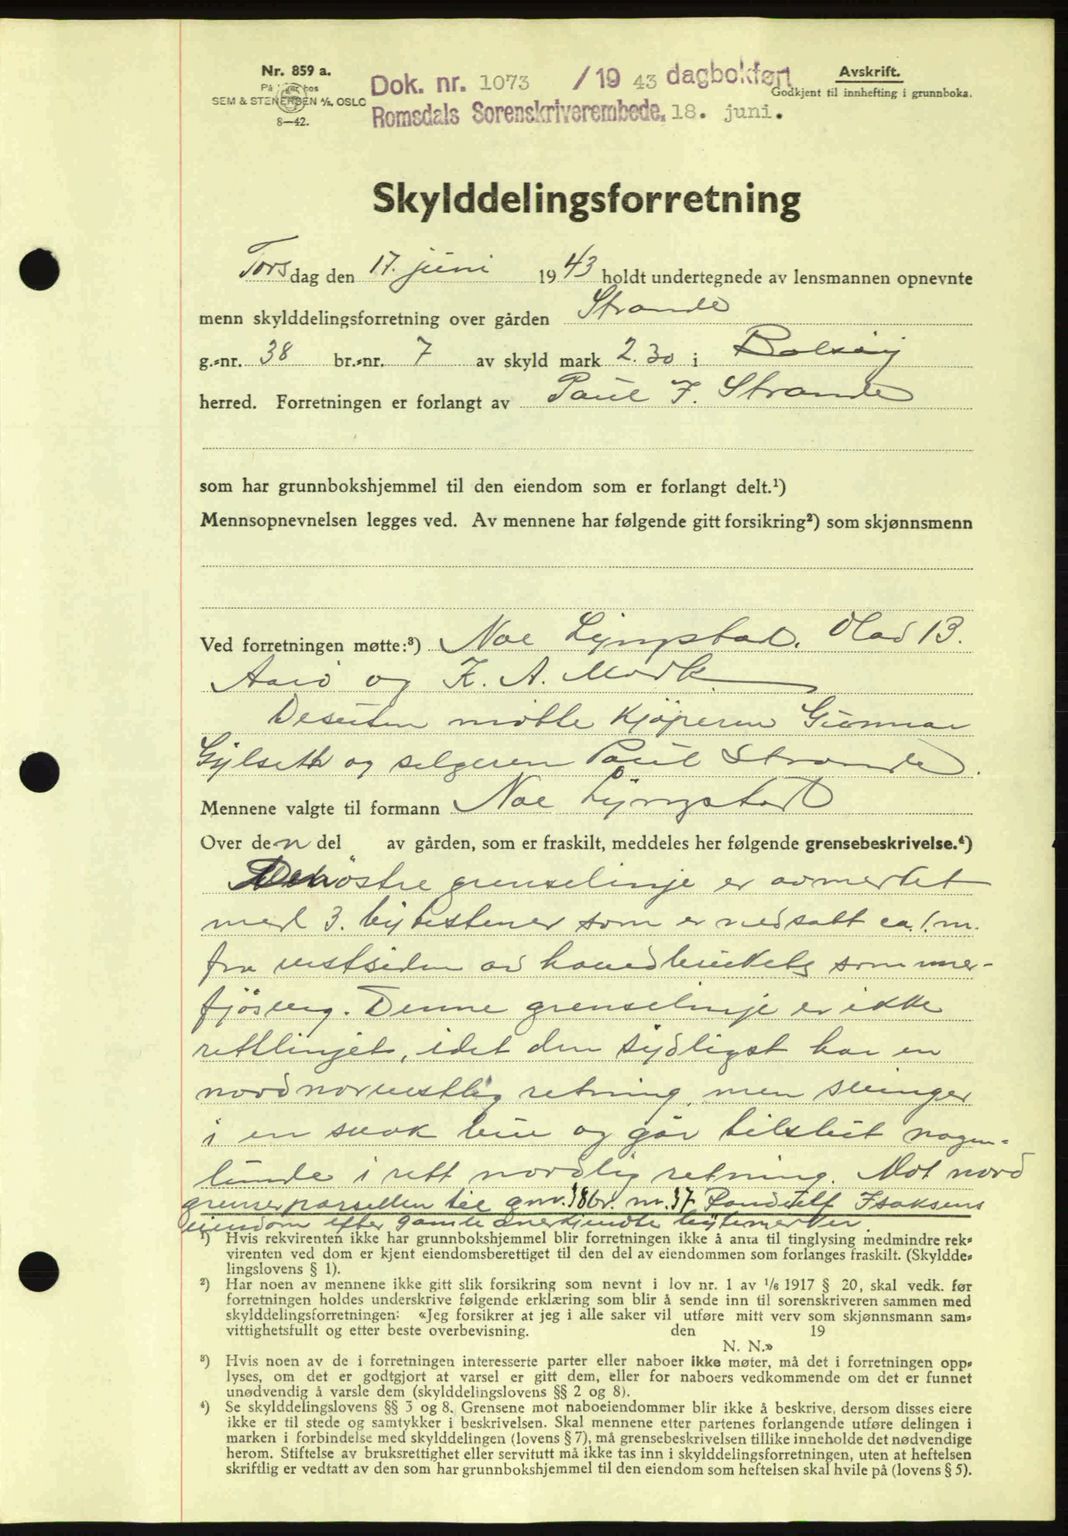 Nr. 859 a.
SEM & STENERSEN A/S, OSLO
8—42.
Dok. nr. 1073 / 19 43 dagbokført
Romsdals Sorenskriverembede, 18. juni.
Avskrift.
Godkjent til innhefting i grunnboka.
Skylddelingsforretning
Torsdag den 17. juni 1943 holdt undertegnede av lensmannen opnevnte
menn skylddelingsforretning over gården Strande
g.-nr. 38 br.-nr. 7 av skyld mark 2.30 i Bolsøy
herred. Forretningen er forlangt av Paul F. Strande
som har grunnbokshjemmel til den eiendom som er forlangt delt.¹)
Mennsopnevnelsen legges ved. Av mennene har følgende gitt forsikring²) som skjønnsmenn
Ved forretningen møtte:³) Noe Lyngstad, Olav B.
Aarø og K. A. Mork
Desuten møtte kjøperen Gunnar
Gylseth og selgeren Paul Strande.
Mennene valgte til formann Noe Lyngstad
Over den del av gården, som er fraskilt, meddeles her følgende grensebeskrivelse.⁴)
østre grenselinje er avmerket
med 3. bytestener som er nedsatt ca. 1. m.
fra vestsiden av hovedbrukets sommer-
fjösveg. Denne grenselinje er ikke
rettlinjet, idet den sydligst har en
nordnorvestlig retning, men svinger
i en svak bue og går tilslut nogen-
lunde i rett nordlig retning. Mot nord
grenser parsellen til gnr. 38 br. nr. 37 Isaksens
eiendom efter gamle anerkjendte bytemerker.
¹) Hvis rekvirenten ikke har grunnbokshjemmel blir forretningen ikke å anta til tinglysing medmindre rek-
virenten ved dom er kjent eiendomsberettiget til den del av eiendommen som forlanges fraskilt. (Skyldde-
lingslovens § 1).
²) Har noen av mennene ikke gitt slik forsikring som nevnt i lov nr. 1 av 1/6 1917 § 20, skal vedk. før
forretningen holdes underskrive følgende erklæring som blir å sende inn til sorenskriveren sammen med
skylddelingsforretningen: «Jeg forsikrer at jeg i alle saker vil utføre mitt verv som skjønnsmann sam-
vittighetsfullt og etter beste overbevisning. den 19
N. N.»
³) Hvis noen av de i forretningen interesserte parter eller naboer ikke møter, må det i forretningen opp-
lyses, om det er godtgjort at varsel er gitt dem, eller for naboers vedkommende om det er funnet
unødvendig å varsle dem (skylddelingslovens §§ 2 og 8).
⁴) Se skylddelingslovens §§ 3 og 8. Grensene mot naboeiendommer blir ikke å beskrive, dersom disses eiere
ikke er til stede og samtykker i beskrivelsen. Skal mennene etter partenes forlangende utføre delingen i
marken i forbindelse med skylddelingen (lovens § 7), må grensebeskrivelsen tillike inneholde det nødvendige
herom. Stiftelse av bruksrettighet eller servitutt må ikke tas inn i skylddelingsforretningen, uten at heftelsen
skriftlig er vedtatt av den som har grunnbokshjemmel til den eiendom som heftelsen skal hvile på (lovens § 5).